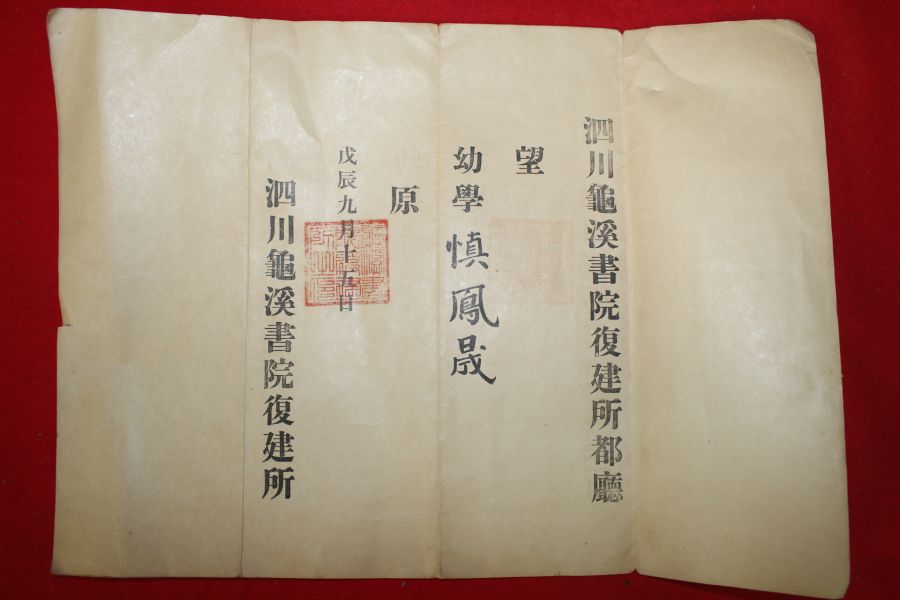 泗川龜溪書院復建所都廳
望
幼學愼鳳晟
原
戊辰九月十五日
泗川龜溪書院復建所